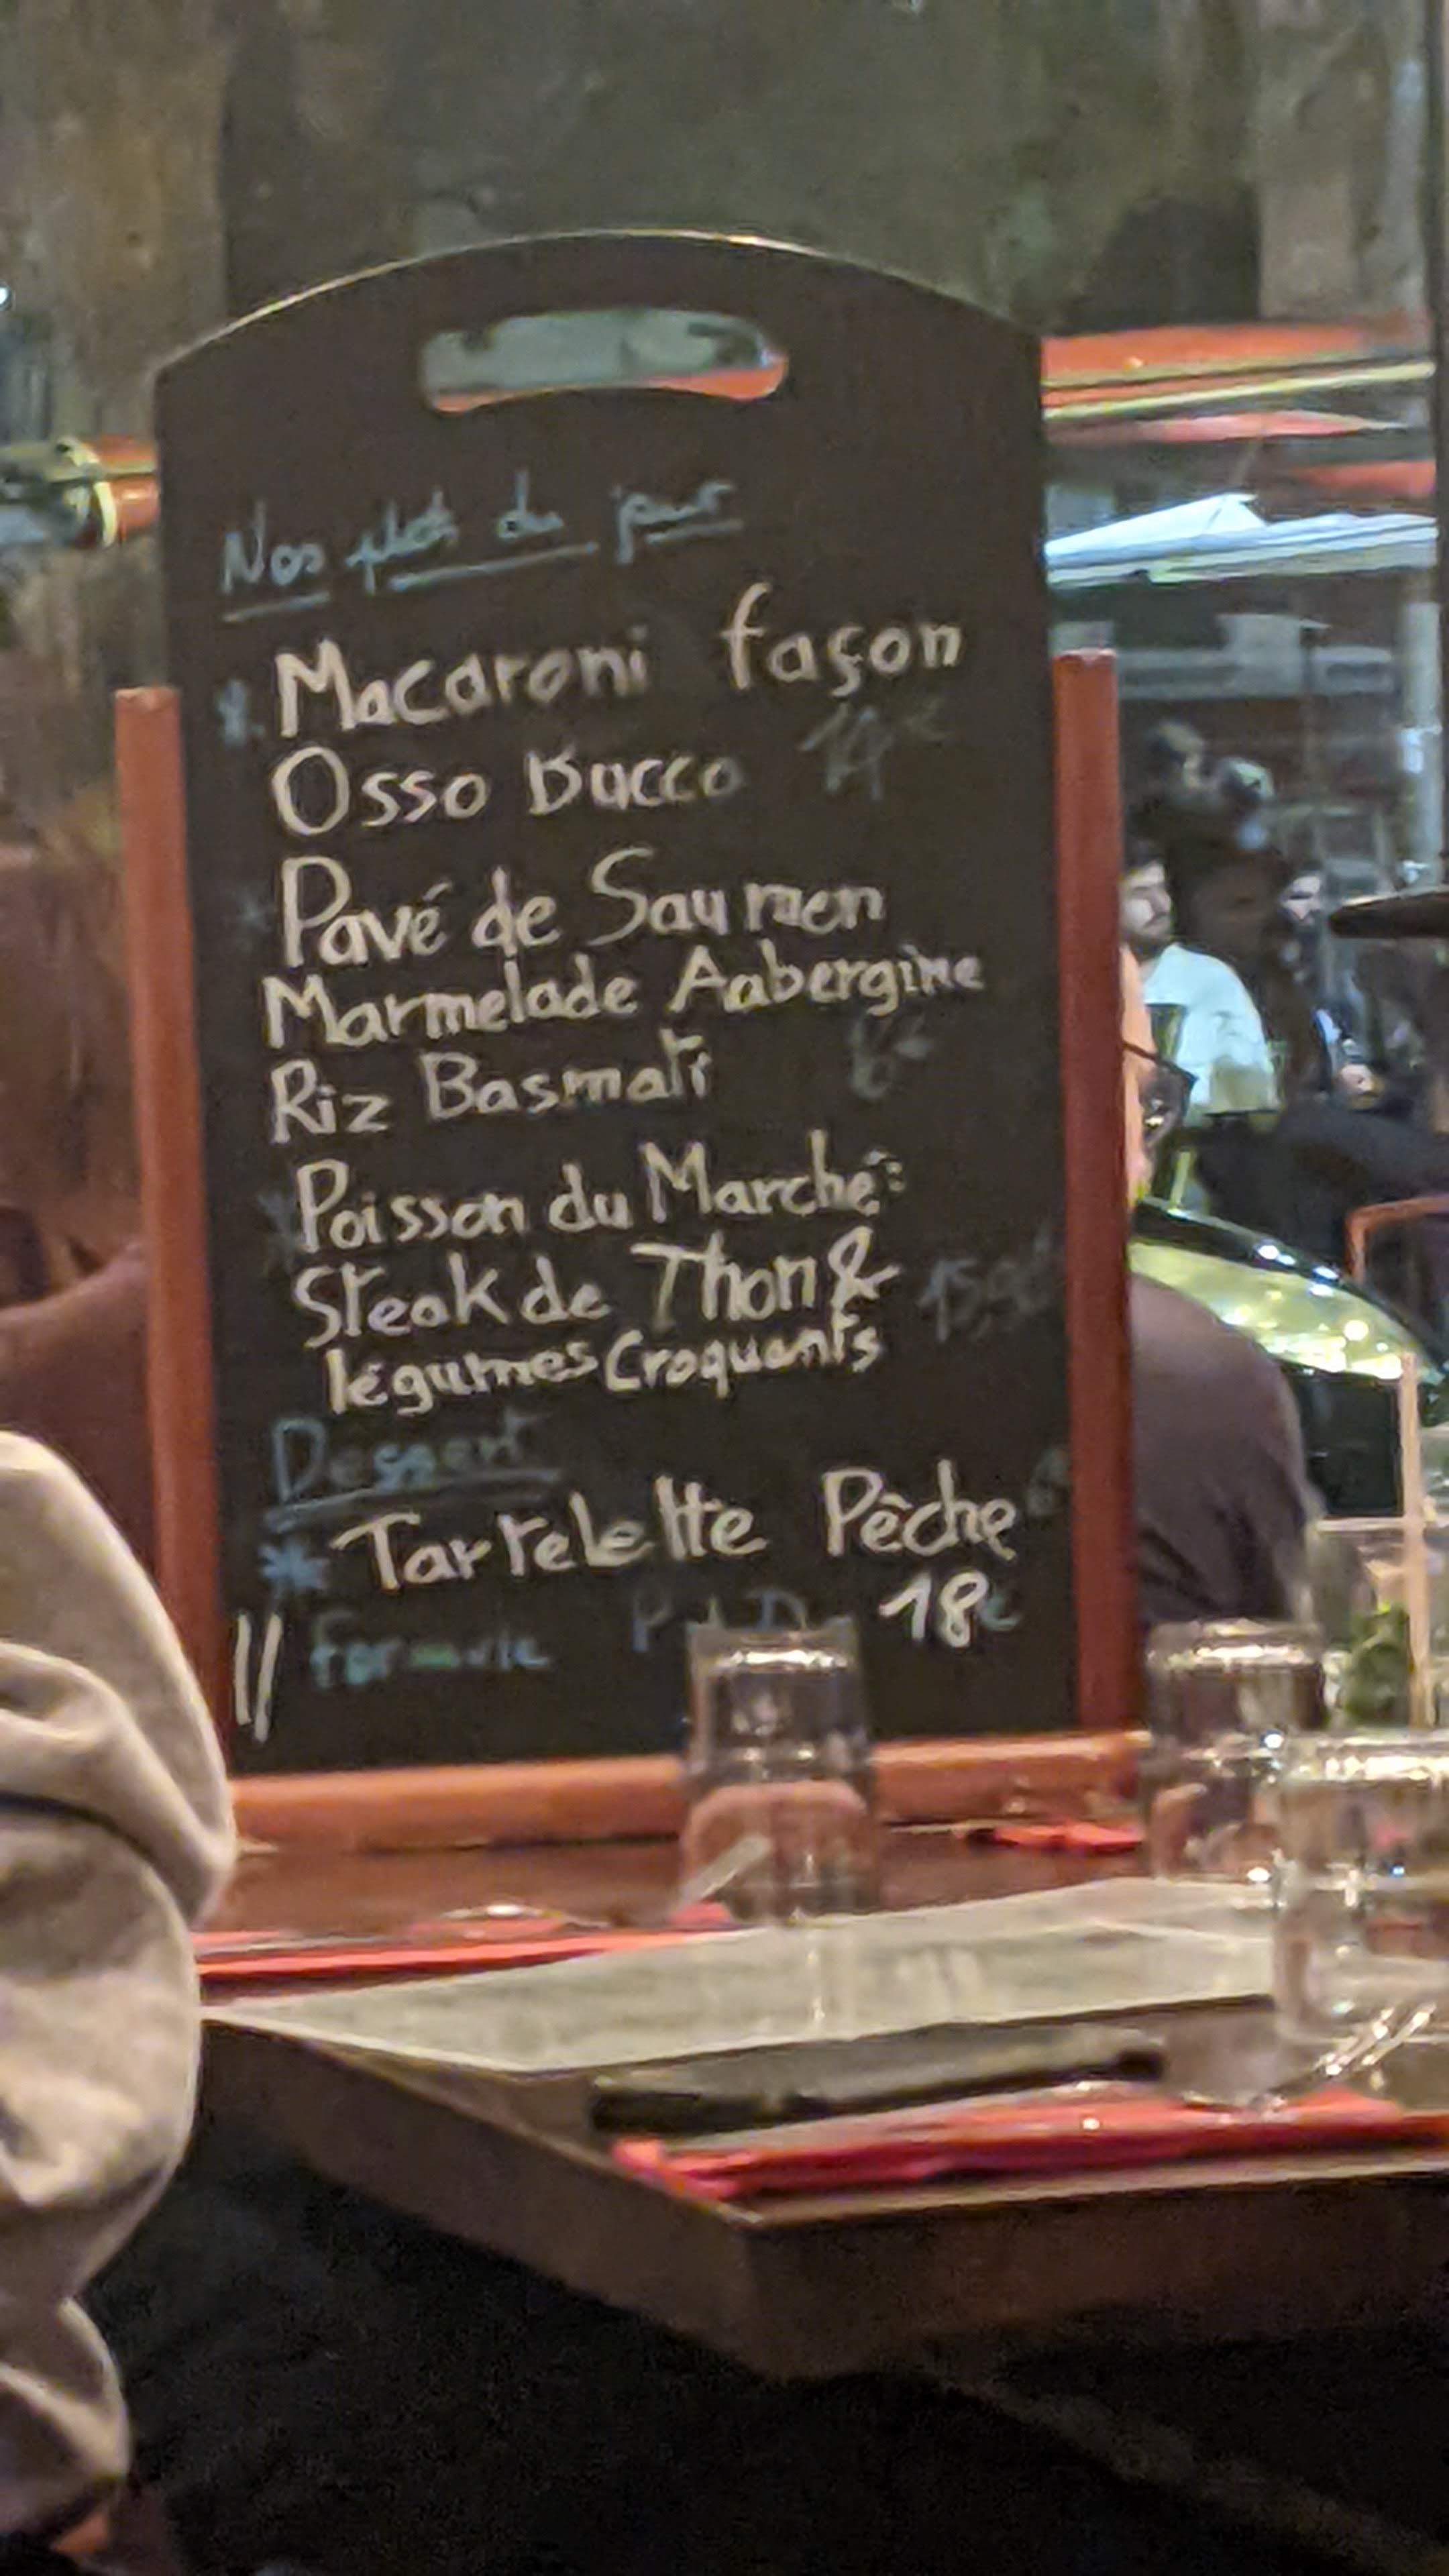 Nos plats du jour
* Macaroni façon
Osso Bucco 14€
* Pavé de Saumon
Marmelade Aubergine
Riz Basmati
* Poisson du Marché:
Steak de Thon &
légumes Croquants
Dessert
* Tartelette Pêche
// Formule 18€